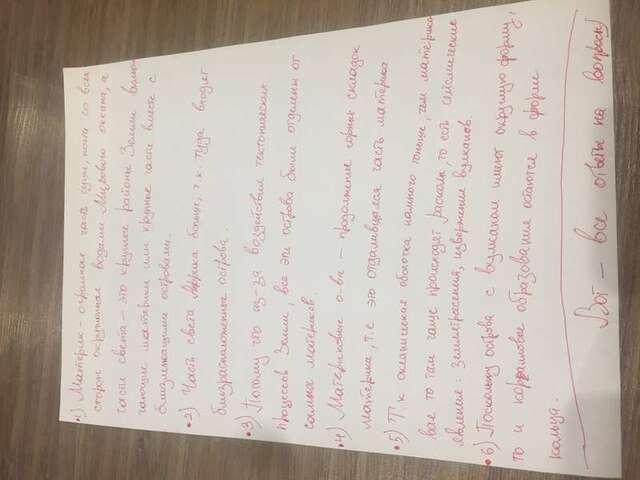 •1) Материк - огромная часть суши, почти со всех
сторон окружённая водами Мирового океана, а
части света - это крупные районы Земли вклю-
чающие материки или крупные части вместе с
близлежащими островами.
•2) Часть света Африка больше, т.к. туда входят
близрасположенные острова.
•3) Потому что из-за воздействия тектонических
процессов Земли, все эти острова были отделены от
самих материков.
•4) Материковые о-ва - продолжение горных складок
материка, т.е это отдалившаяся часть материка
•5) Т.к океаническая оболочка намного тоньше, чем материко
вае то там чаще происходят расколы, то есть сейсмические
явления: землетресения, извержение вулканов.
•6) Поскольку острова с вулканом имеют округлую форму,
то и коралловые образования остаются в форме
кольца.
Вот - все ответы на вопросы